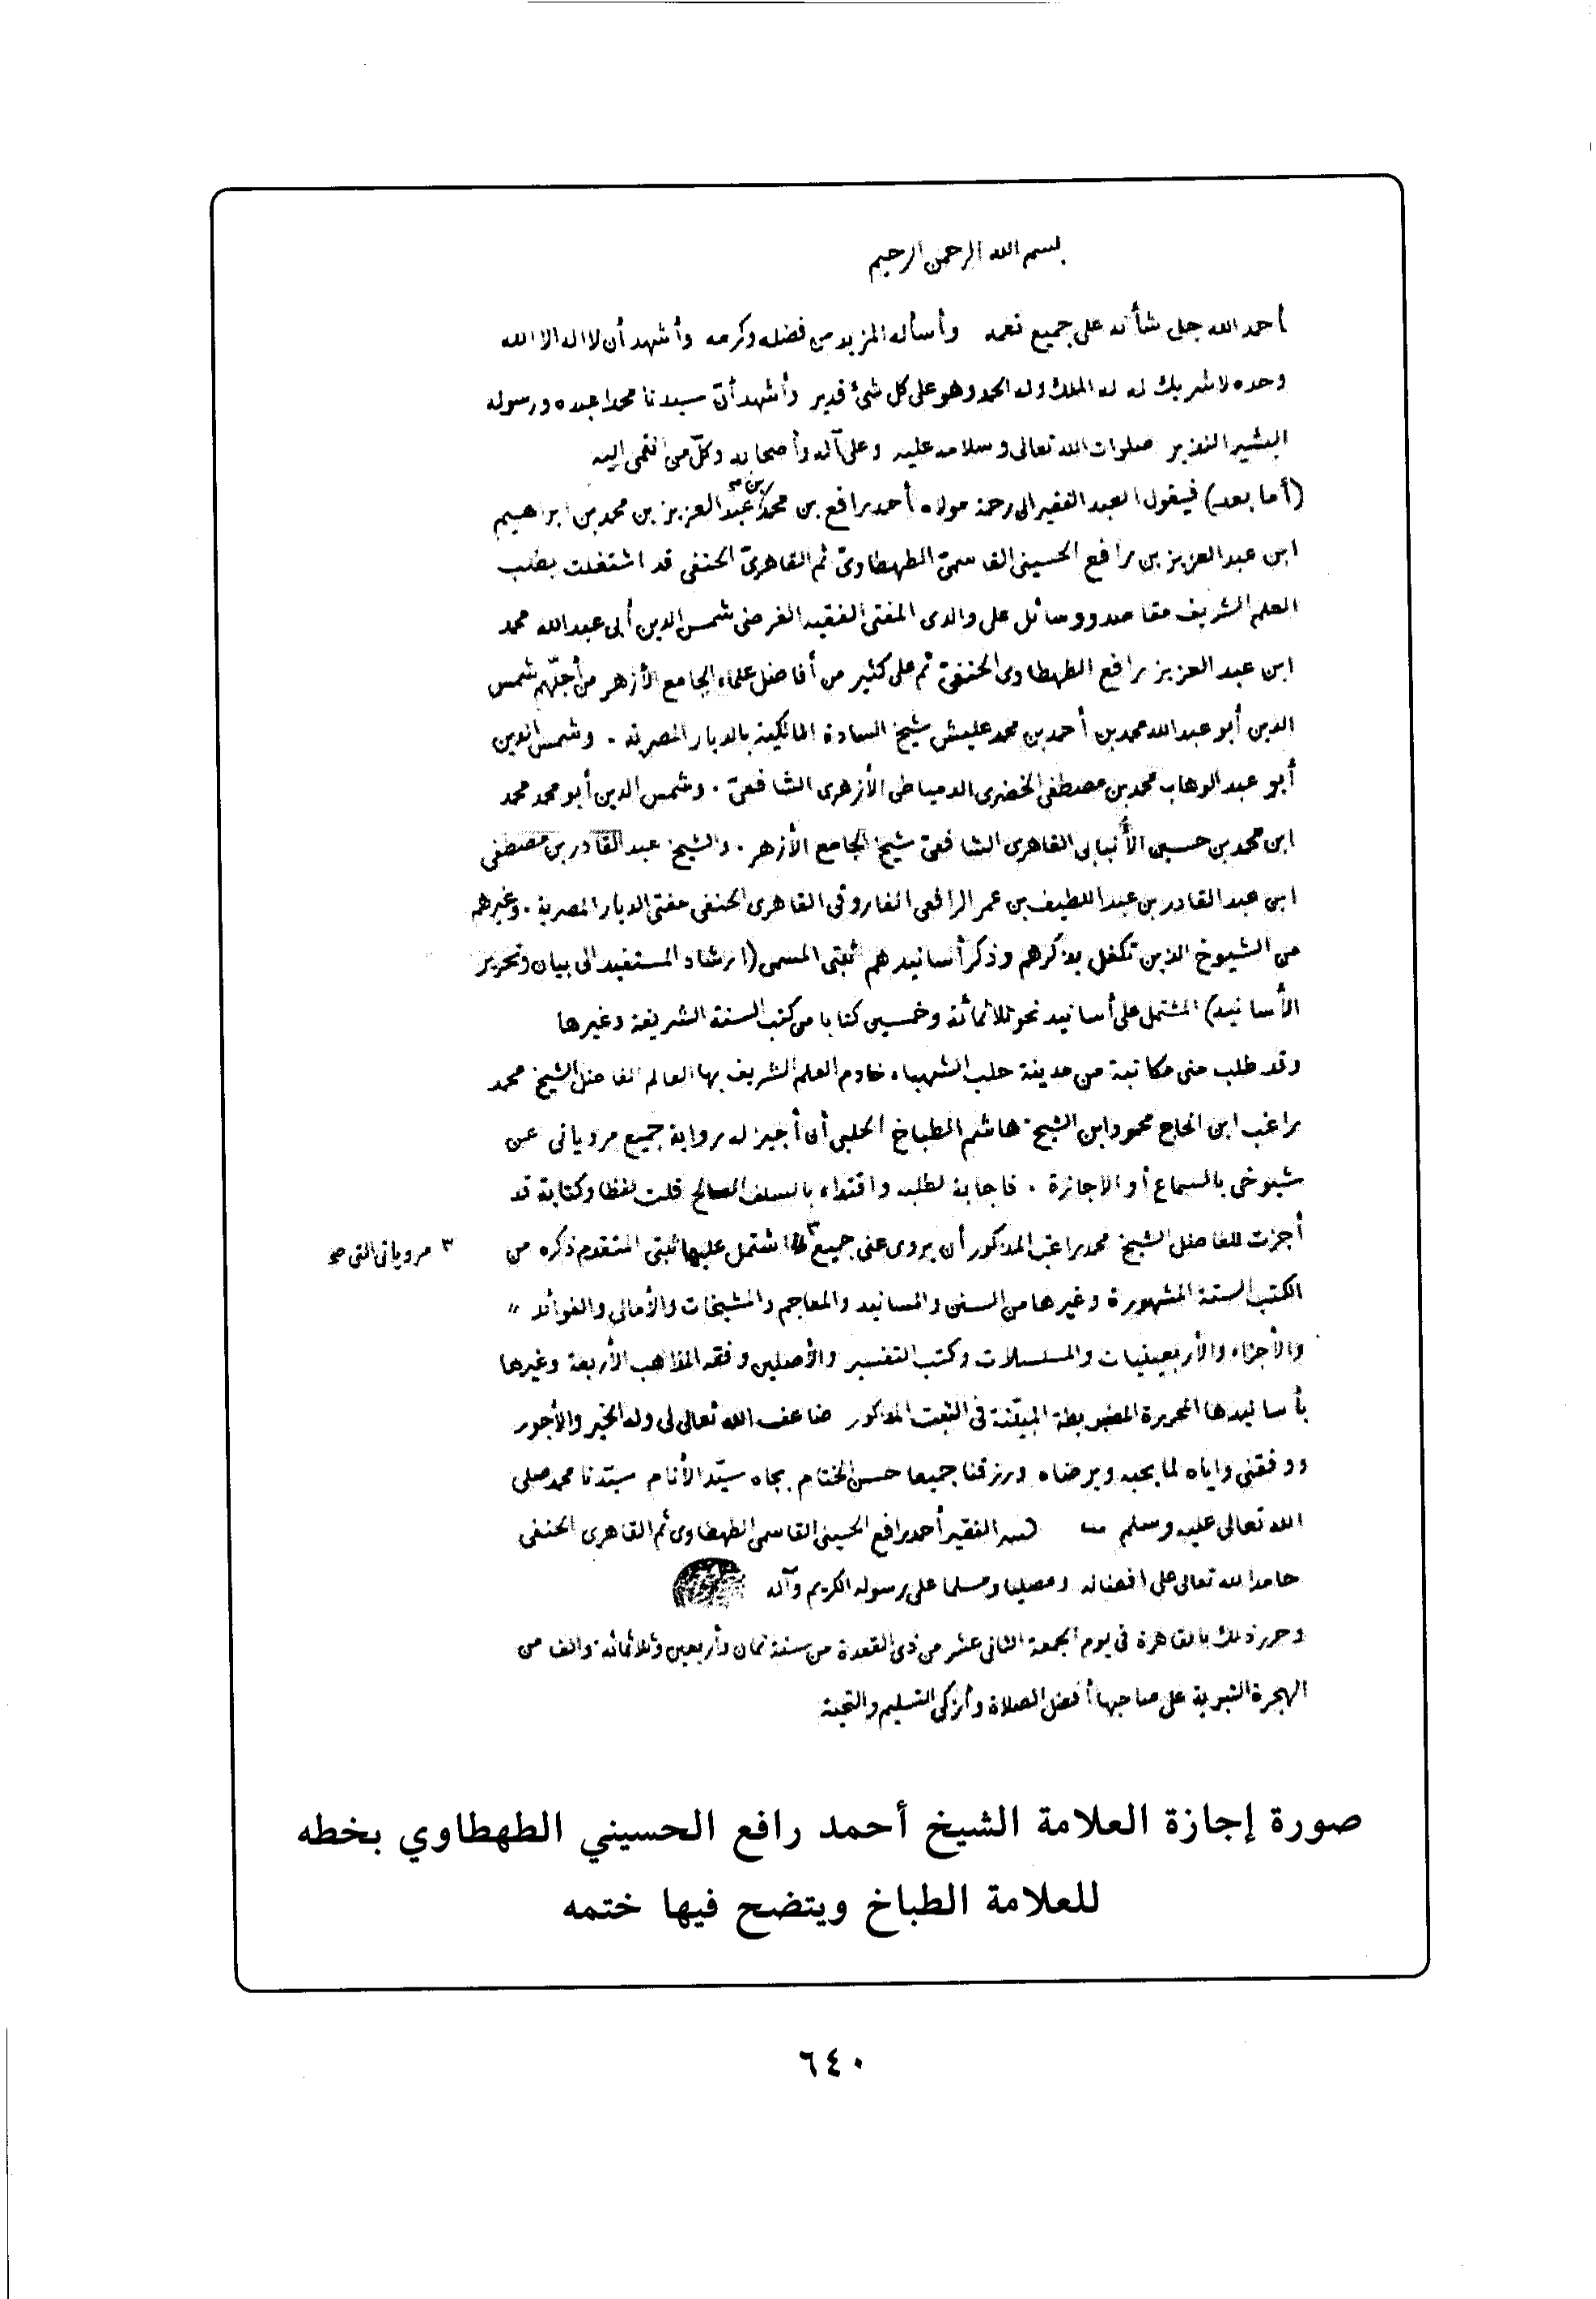 بسم الله الرحمن الرحيم
أحمد الله جل شأنه على جميع نعمه وأسأله المزيد من فضله وكرمه وأشهد أن لا اله الا الله
وحده لا شريك له له الملك وله الحمد وهو على كل شئ قدير وأشهد أن سيدنا محمدا عبده ورسوله
البشير النذير صلوات الله تعالى وسلامه عليه وعلى آله وأصحابه وكل من انتمى اليه
(أما بعد) فيقول العبد الفقير الى رحمة مولاه أحمد رافع بن محمد بن عبد العزيز بن محمد بن ابراهيم
ابن عبد العزيز بن رافع الحسينى القاسمىّ الطهطاوىّ ثم القاهرىّ الحنفى قد اشتغلت بطلب
العلم الشريف مقاصد ووسائل على والدى المفتى الفقيه الفرضى شمس الدين أبى عبد الله محمد
ابن عبد العزيز رافع الطهطاوى الحنفىّ ثم على كثير من أفاضل علماء الجامع الأزهر من أجلّهم شمس
الدين أبو عبد الله محمد بن أحمد بن محمد عليش شيخ السادة المالكية بالديار المصرية . وشمس الدين
أبو عبد الوهاب محمد بن مصطفى الخضرى الدمياطى الأزهرى الشافعىّ . وشمس الدين أبو محمد محمد
ابن محمد بن حسين الأُنبابى القاهرى الشافعىّ شيخ الجامع الأزهر . والشيخ عبد القادر بن مصطفى
ابن عبد القادر بن عبد اللطيف بن عمر الرافعى الفاروقى القاهرى الحنفى مفتى الديار المصرية . وغيرهم
من الشيوخ الذين تكفل بذكرهم وذكر أسانيدهم ثبتى المسمى (ارشاد المستفيد الى بيان وتحرير
الأسانيد) المشتمل على أسانيد نحو ثلاثمائة وخمسين كتابا من كتب السنة الشريفة وغيرها
وقد طلب منى مكاتبة من مدينة حلب الشهباء خادم العلم الشريف بها العالم الفاضل الشيخ محمد
راغب ابن الحاج محمود ابن الشيخ هاشم الطباخ الحلبى أن أجيز له رواية جميع مروياتى عن
شيوخى بالسماع أو الاجازة . فاجابة لطلبه واقتداء بالسلف الصالح قلت لفظا وكتابة قد
أجزت للفاضل الشيخ محمد راغب المذكور أن يروى عنى جميع ٣ اشتمل عليها ثبتى المتقدم ذكره من
٣ مروياتى التى صح
الكتب الستة المشهورة وغيرها من السنن والمسانيد والمعاجم والمشيخات والأمالى والفوائد "
والأجزاء والأربعينيات والمسلسلات وكتب التفسير والأصلين وفقه المذاهب الأربعة وغيرها
بأسانيدها المحررة المضبوطة المبيّنة فى الثبت المذكور ضاعف الله تعالى لى وله الخير والأجور
ووفقنى واياه لما يحبه ويرضاه ورزقنا جميعا حسن الختام بجاه سيّد الأنام سيّدنا محمد صلى
الله تعالى عليه وسلم الفقير أحمد رافع الحسينى القاسمى الطهطاوى ثم القاهرى الحنفى
حامدا لله تعالى على افضاله ومصليا ومسلما على رسوله الكريم وآله
وحرر ذلك بالقاهرة فى يوم الجمعة الثانى عشر من ذى القعدة من سنة ثمان وأربعين وثلاثمائة والف من
الهجرة النبوية على صاحبها أفضل الصلاة وأزكى التسليم والتحية
صورة إجازة العلامة الشيخ أحمد رافع الحسيني الطهطاوي بخطه
للعلامة الطباخ ويتضح فيها ختمه
٦٤٠